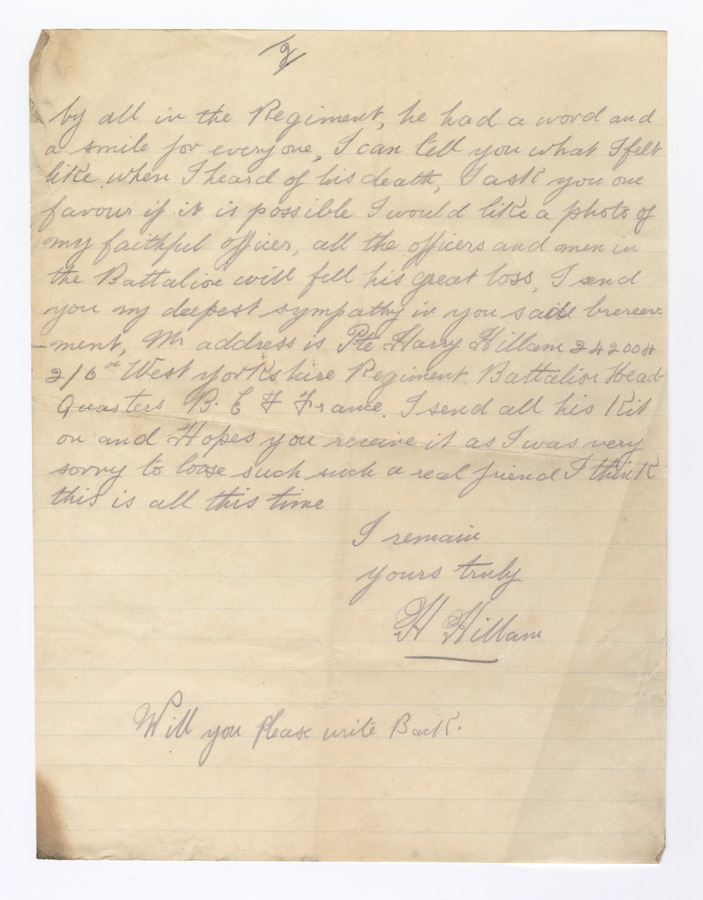 2/
by all in the Regiment, he had a word and
a smile for everyone, I can tell you what I felt
like when I heard of his death, I ask you one
favour if it is possible I would like a photo of
my faithful officer, all the officers and men in
the Battalion will fell his great loss, I send
you my deepest sympathy in you said bereev-
-ment, Mr address is Pte Harry Hillam 242004
2/6th West Yorkshire Regiment Battalion Head
Quasters B. E F France. I send all his Kit
on and Hopes you receive it as I was very
sorry to loose such such a real friend I think
this is all this time
I remain
yours truly
H Hillam
Will you please write Back.